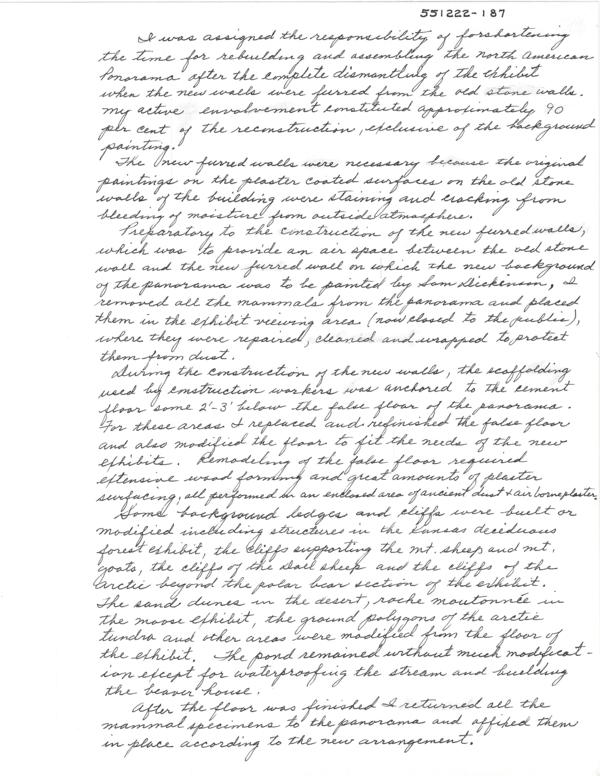 551222-187
I was assigned the responsibility of forshortening
the time for rebuilding and assembling the north American
Panorama after the complete dismantling of the exhibit
when the new walls were furred from the old stone walls.
My active envolvement constituted approximately 90
per cent of the reconstruction, exclusive of the background
painting.
The new furred walls were necessary because the original
paintings on the plaster coated surfaces on the old stone
walls of the building were staining and cracking from
bleeding of moisture from outside atmosphere.
Preparatory to the construction of the new furred walls,
which was to provide an air space between the old stone
wall and the new furred wall on which the new background
of the panorama was to be painted by Sam Dickinson, I
removed all the mammals from the panorama and placed
them in the exhibit viewing area (now closed to the public),
where they were repaired, cleaned and wrapped to protect
them from dust.
During the construction of the new walls, the scaffolding
used by construction workers was anchored to the cement
floor some 2'-3' below the false floor of the panorama.
For these areas I replaced and refinished the false floor
and also modified the floor to fit the needs of the new
exhibits. Remodeling of the false floor required
extensive wood forming and great amounts of plaster
surfacing, all performed in an enclosed area of ancient dust & air borne plaster.
Some background ledges and cliffs were built or
modified including structures in the Kansas deciduous
forest exhibit, the cliffs supporting the mt. sheep and mt.
goats, the cliffs of the Dall sheep and the cliffs of the
arctic beyond the polar bear section of the exhibit.
The sand dunes in the desert, roche moutonnée in
the moose exhibit, the ground polygons of the arctic
tundra and other areas were modified from the floor of
the exhibit. The pond remained without much modificat-
ion except for waterproofing the stream and building
the beaver house.
After the floor was finished I returned all the
mammal specimens to the panorama and affixed them
in place according to the new arrangement.